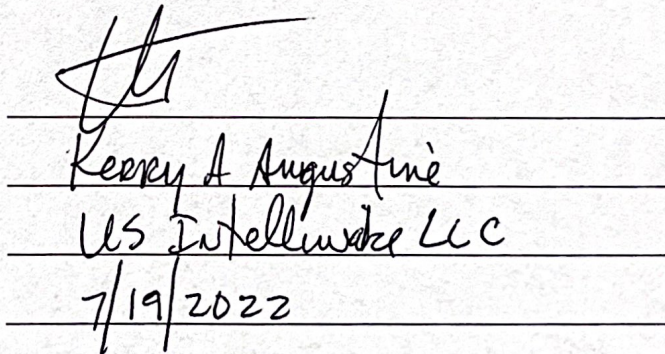 Kerry A Augustine
US Intelliwake LLC
7/19/2022